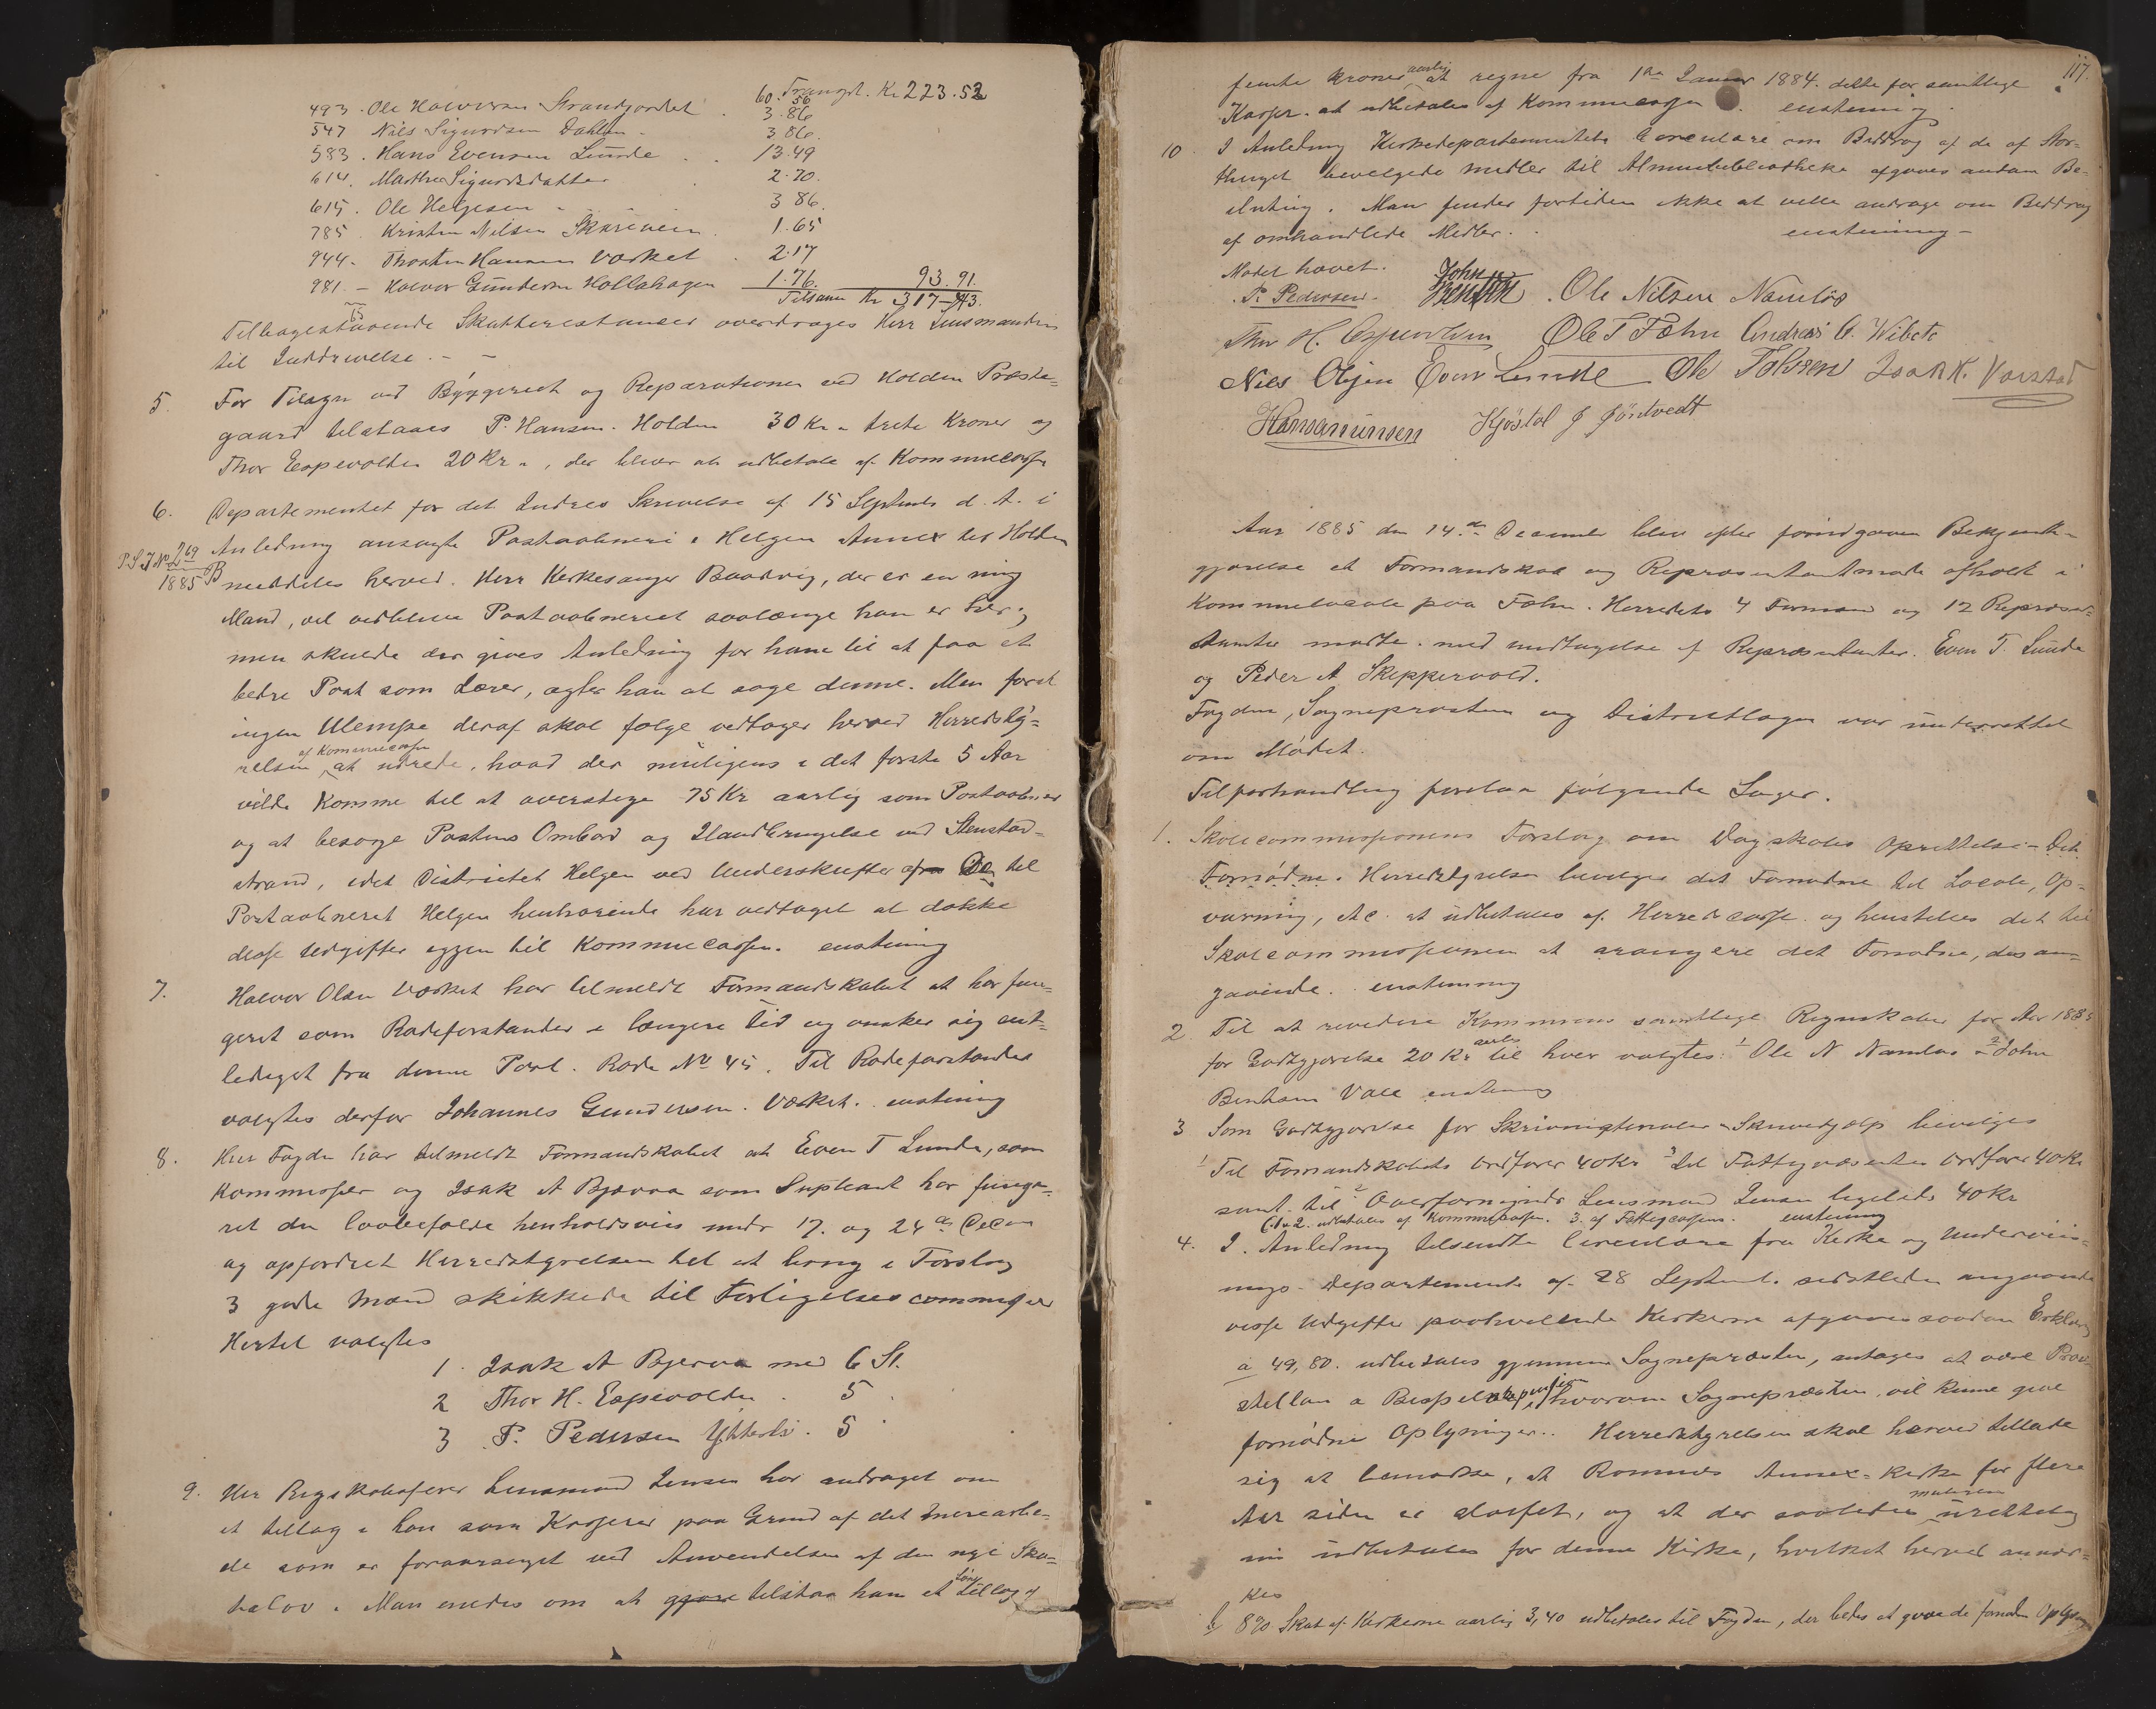 Transport. Kr 223.52
493. Ole Halvorsen Strandjordet . 60.56
547 Nils Sigurdsen Dahlen - 3.86
583. Hans Evensen Lunde . . 3 86.
13.49
614. Marthe Sigurdsdatter . 2.70.
615. Ole Helgesen - 3 86.
785. Kristen Nilsen Skareveien . 1.65
944. Thorsten Hansen Værket . 2.17
981. - Halvor Gundersen Hollahagen 1.76. 93.91
Tilsam Kr 317-43.
Tilbagestaaende Skatterestancer overdrages Herr Lensmanden
til Inddrivelse. - -
5. For Tilsyn ved Byggeriet og Reparationer ved Holden Præste-
gaard tilstaaes P. Hansen. Holden 30 Kr - trete Kroner og
Thor Espevolden 20 Kr -, der bliver at udbetale af Kommuecassen
6. Departementet for det Indres Skrivelse af 15 Septembr d. A. i
P S J No 269 Anledning ansøgte Postaabneri i Helgen Annex til Holden
1885 B meddeles herved. Herr Kirkesanger Baadvig, der er en ung
Mand, vil vedblive Postaabneriet saalænge han er her;
men skulde der gives Anledning for ham til at faa et
bedre Post som Lærer, agter han at søge denne. Men forat
ingen Ulempe deraf skal følge vedtager herved Herredsty-
af Kommuecassen
relsen at udrede, hvad der muligens i det første 5 Aar
vilde komme til at overstige 75 Kr aarlig som Postaabner
og at besørge Postens Ombord og Ilandbringelse ved Stenstad-
strand, idet Districtet Helgen ved Underskrifter afra De til
Postaabneriet Helgen henhørende har vedtaget at dække
disse Udgifter igjen til Kommuecassen. enstemig
7. Halvor Olsen Værket har tilmeldt Formandskabet at har fun-
geret som Rodeforstander i længere Tid og ønsker sig ent-
lediget fra denne Post. Rode No 45. Til Rodeforstander
valgtes derfor Johannes Gundersen. Værket. enstemig
8. Herr Fogden har tilmeldt Formandskabet at Even T Lunde, som
Kommissær og Isak A Bjerva som Supleant har funge-
ret den lovbefalede henholdsvis under 17. og 24 de Decem
og opfordret Herredstyrelsen til at bring i Forslag
3 gode Mænd skikkede til Forligelsescommissær
Hertil valgtes
1. Isak A Bjerva med 6 St.
2 Thor H. Espevolden . 5 .
3 P. Pedersen Ytterbø . 5 .
9. Herr Regnskabsfører Lensmand Jensen har andraget om
et tillæg i løn som Kasserer paa Grund af det merearbei-
de som er foraarsaget ved Anvendelsen af den nye Skat-
telov. Man enedes om at gjøre tilstaa ham et Løns tillæg af
117.
femte kroner aarlig at regne fra 1ste Januar 1884. dette for samtlige
Kasser. at udbetales af Kommuecassen . enstemig.
10 I Anledning Kirkedepartementets Circulære om Bidrag af de af Stor-
thinget bevilgede midler til Almuebibliotheker afgaves saadan Be-
slutning. Man finder fortiden ikke at ville andrage om Bidrag
af omhandlede Midler. . enstemmig -
Mødet hævet.
P. Pedersen. John Bentsen . Ole Nilsen Namløs
Thor H. Espevolden Ole T Fæhn Andreas A. Wibeto
Niels Olsen Even Lunde Ole Tolvsen Isak K. Vaastad
Hansamunsen Kjöstol J Jöntvedt
Aar 1885 den 14.de December blev efter forudgaaen Bekjendt-
gjørelse et Formandskab og Repræsentantmøde afholdt i
Kommuelocale paa Fæhn. Herredets 4 Formænd og 12 Repræsen-
tanter mødte. med undtagelse af Repræsentanter. Even T. Lunde
og Peder A Skippervold.
Fogden, Sognepræsten og Districtlægen var underrettet
om Mödet.
Til forhandling forelaa følgende Sager.
1. Skolecommissionens Forslag om Dagskoles Oprettelse - Det
Fornødne. Herredstyrelsen bevilger det Fornødne til Locale, Op-
varming, etc. at udbetales af Herredscasse. og henstilles det til
Skolecommissionen at arangere det Fornødne, des an-
gaaende. enstemmig
2. Til at revidere Kommuens samtlige Regnskaber for Aar 1885
for Godtgjørelse 20 Kr aarlig til hver valgtes: 1 Ole N Namløs - 2 John
Bentsen Vale enstemig
3 Som Godtgjørelse for Skrivmaterialer - Skrivehjælp bevilges
1 Til Formandskabets Ordfører 40 Kr 3 til Fattigvæsenets Ordfører 40 Kr
samt til 2 Overformynder Lensmand Jensen ligeledes 40 Kr
1 & 2. udbetales af Kommuecassen. 3. af Fattigcassen. enstemig
4. I. Anledning tilsendte Circulære fra Kirke og Undervis-
nings-Departemente af 28 Septemb. sidstleden angaaende
visse Udgifter paahvilende Kirkerne afgaves saadan Erklæring
a 49,80. udbetales gjennem Sognepræsten, antages at være Pro-
stellan a Bispel hvorom Sognepræsten vil kunne give
fornødne Oplysninger. . Herredstyrelsen skal herved tillade
sig at bemærke, at Romnes Annex-kirke for flere
Aar siden er sløifet, og at der saaledes uretteleg
nu udbetales for denne Kirke, hvilket herved anmær-
kes
b 890 Skat af Kirkerne aarlig 3,40 udbetales til Fogden, der bedes at give de fornødn Oplysning